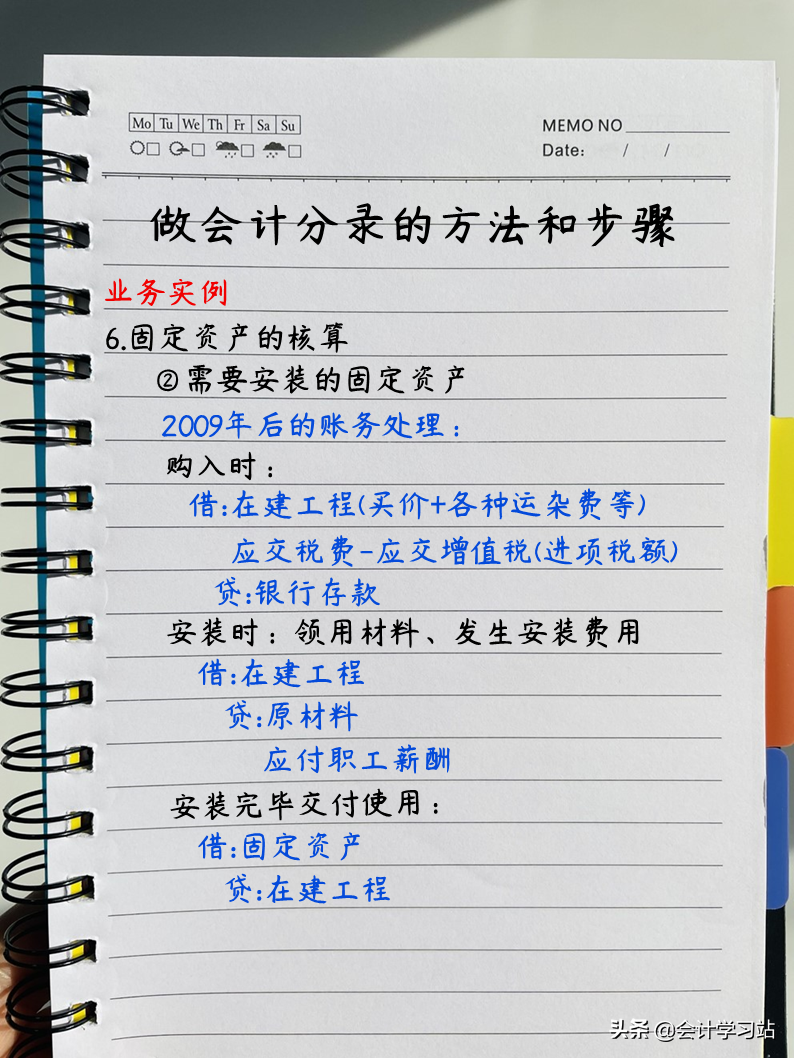 Mo Tu We Th Fr Sa Su
MEMO NO
Date: / /
做会计分录的方法和步骤
业务实例
6.固定资产的核算
②需要安装的固定资产
2009年后的账务处理：
购入时：
借:在建工程(买价+各种运杂费等)
应交税费-应交增值税(进项税额)
贷:银行存款
安装时：领用材料、发生安装费用
借:在建工程
贷:原材料
应付职工薪酬
安装完毕交付使用：
借:固定资产
贷:在建工程
头条 @会计学习站